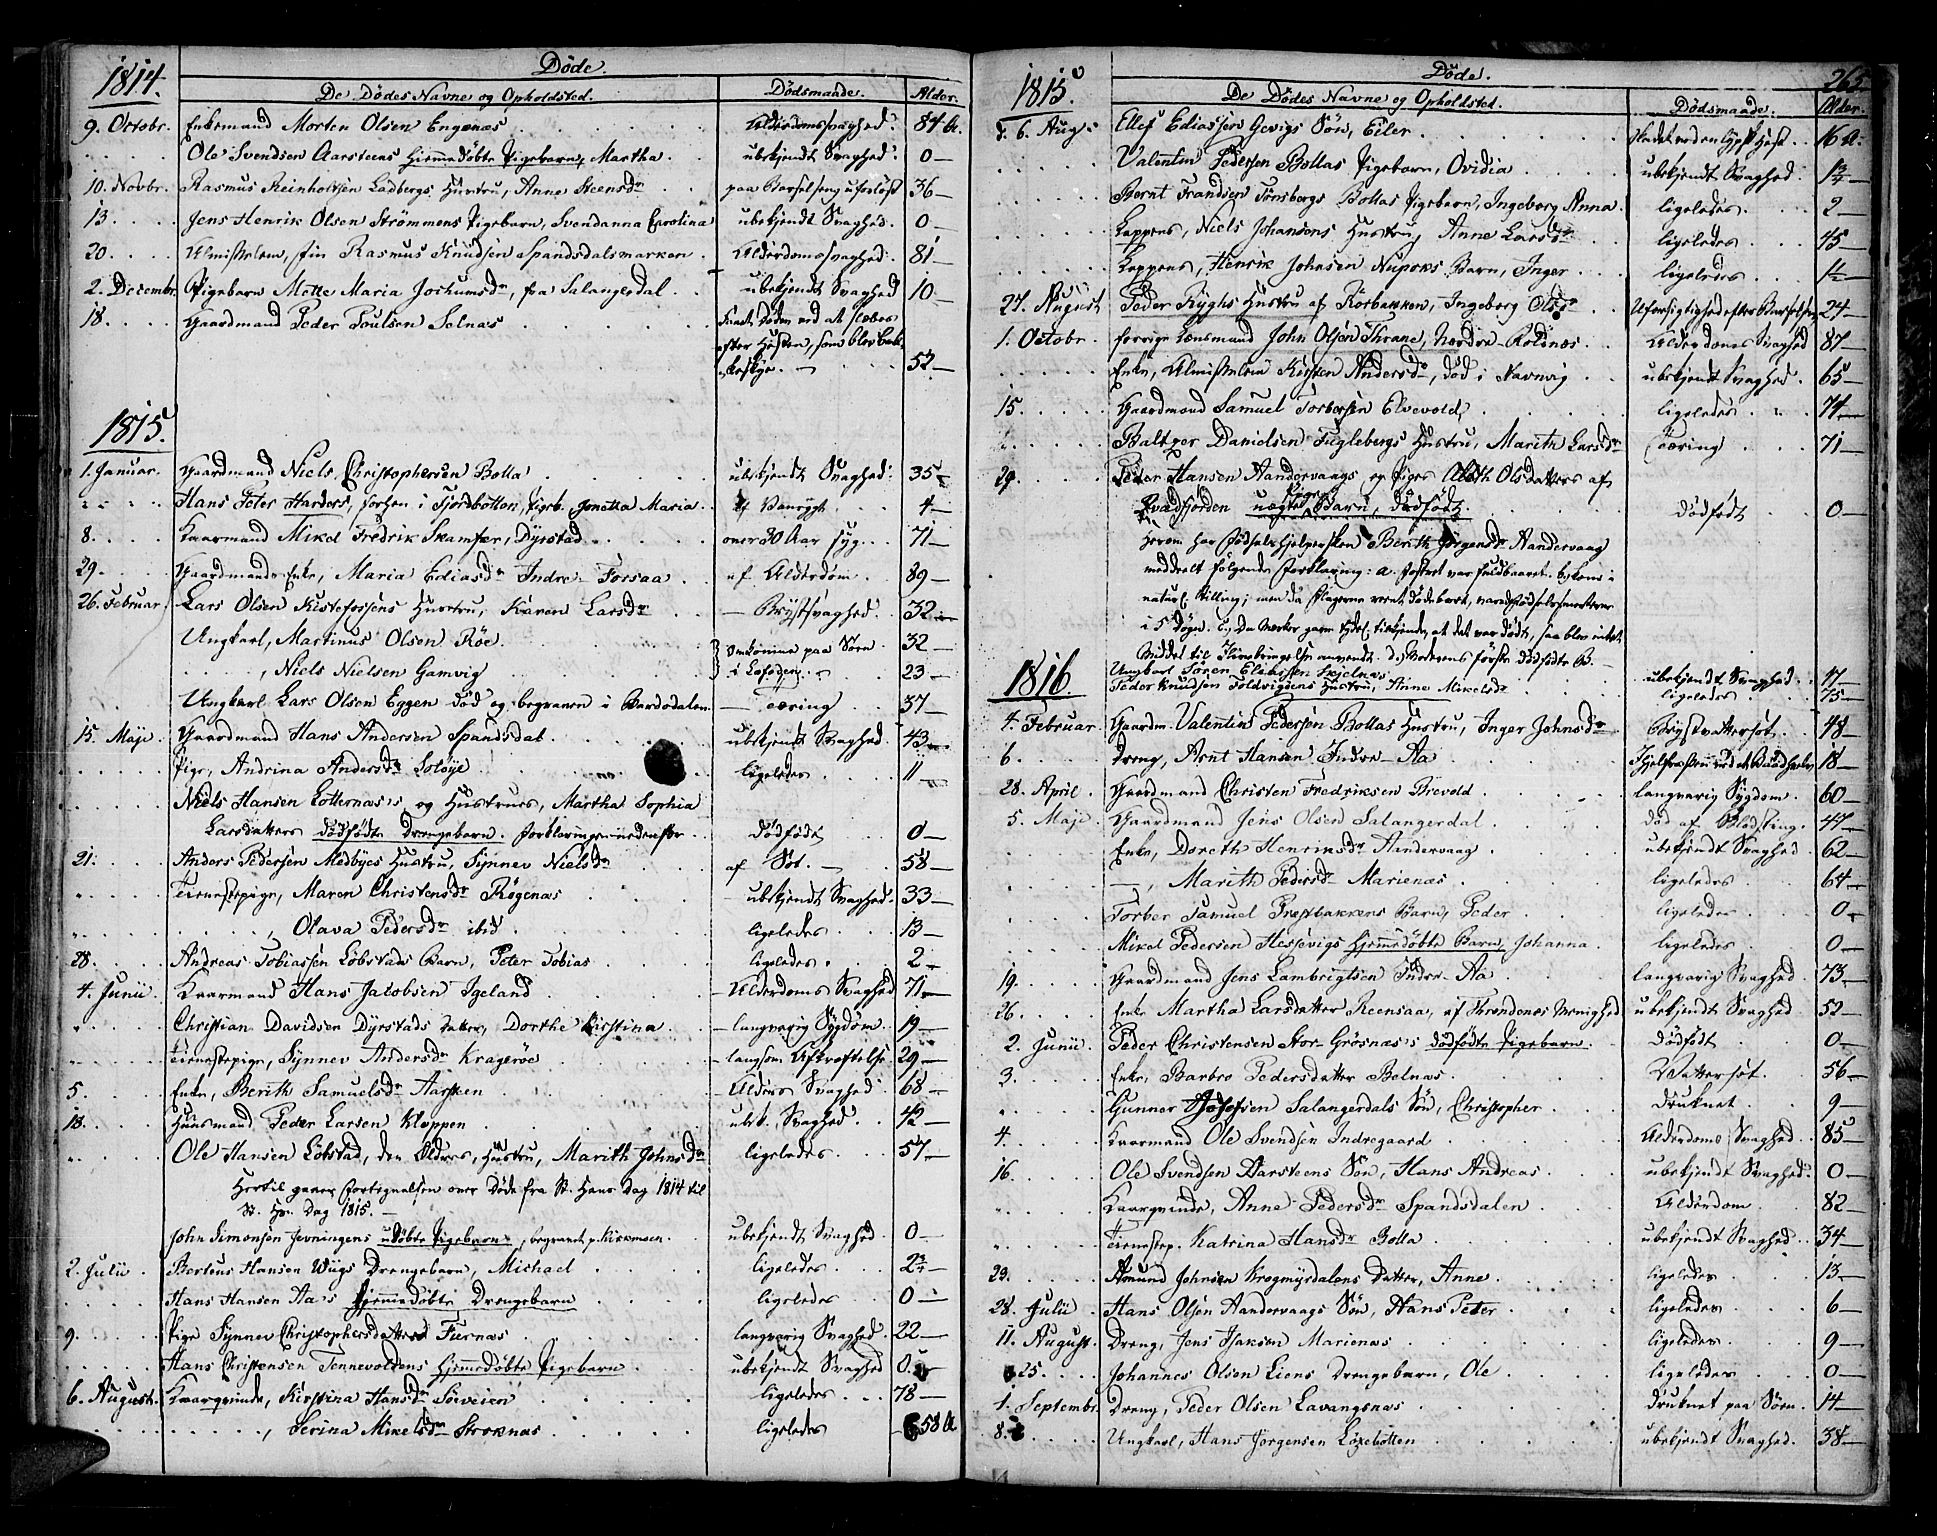 1814.
Døde.
De Dødes Navne og Opholdsted.
Dødsmaade.
Alder.
9. Octobr. Enkemand Morten Olsen Engenæs Alderdomssvaghed. 84 A.
Ole Svendsen Aarsteens hjemmedøbte Pigebarn, Martha. ubekjendt Svaghed. 0 —
10. Novbr. Rasmus Reinholtsen Ladbergs Hustru, Anne Steensdr paa Barselseng uforløst 36 —
13. Jens Henrik Olsen Strømmens Pigebarn, Svendanna Carolina ubekjendt Svaghed. 0 —
20. Almisselem, Rasmus Knudsen Spandsdalsmarken. Alderdomssvaghed. 81 —
2. Decembr. Pigebarn Mette Maria Jochumsdr, fra Salangerdal. ubekjendt Svaghed 10 —
18. Gaardmand Peder Poulsen Solnæs Fandt Døden ved at slæbes
efter Hesten, som blev
52 —
1815.
1. Januar. Gaardmand Niels Christophersen Bolla ubekjendt Svaghed. 35 —
Hans Peter Harders, forhen i Fjordbotten, Pigeb. Jonetta Maria. 4 —
8. Kaarmand Mikel Fredrik Skamfer, Dyrstad. over 30 Aar syg. 71 —
29. Gaardmands Enke, Maria Ediasdr Indre Forsaa af Alderdom. 89 —
26. Februar. Lars Olsen Kistefossens Hustru, Karen Larsdr — Brystsvaghed. 32 —
Ungkarl, Martinus Olsen Røe. omkomne paa Søen 32 —
, Niels Nielsen Gamvig i Lofoden. 23 —
Ungkarl Lars Olsen Eggen død og begraven i Bardodalen. — Tæring 37 —
15. Maji. Gaardmand Hans Andersen Spandsdal. ubekjendt Svaghed. 43 —
Pige, Andrina Andersdr Soløye ligeledes 11 —
Niels Hansen Lotternæs's og Hustrues, Martha Sophia
Larsdatters dødfødte Drengebarn. Forklaringen nedenfor. Dødfødt 0 —
21. Anders Pedersen Medbyes Hustru, Synnev Nielsdr af Sot. 58 —
Tienestepige, Maren Christensdr Røgenæs ubekjendt Svaghed. 33 —
, Olava Pedersdr ibid. ligeledes 13 —
28. Andreas Tobiassen Løbstads Barn, Peter Tobias ligeledes. 2 —
4. Junii. Kaarmand Hans Jacobsen Igeland — Alderdoms Svaghed 71 —
Christian Davidsen Dyrstads Datter, Dorthe Kirstina — langvarig Sygdom. 19 —
Tienestepige, Synnev Andersdr Kragerøe langsom Afkræftelse 29 —
5. Enke, Berith Samuelsdr Aarsteen — Alders Svaghed 68 —
18. Huusmand Peder Larsen Kloppen ubek. Svaghed. 42 —
Ole Hansen Løbstad, den Ældres, Hustru, Marith Johnsdr ligeledes 57 —
Hertil gaaer Fortegnelsen over Døde fra St. Hans Dag 1814 til
St. Hs. Dag 1815. —
John Simonsen Jevningens udøbte Pigebarn, begravet p. Kirkmoen. ubekjendt Svaghed. 0 —
2. Julii. Berteus Hansen Wiigs Drengebarn, Michael ligeledes. 2¾ —
Hans Hansen Aa's hjemmedøbte Drengebarn ligeledes 0 —
9. Pige Synnev Christophersdatter Tiernæs langvarig Svaghed. 22 —
Hans Christensen Tennevoldens hjemmedøbte Pigebarn. ubekjendt Svaghed 0.
6. August. Kaarqvinde, Kirstina Hansdr Sørveien ligeledes 78 —
, Serina Mikelsdr Stroknæs ligeledes 58 A
1815.
Døde.
265
De Dødes Navne og Opholdsted.
Dødsmaade.
Alder.
d. 6. Aug. Ellef Ediassen Gevigs Søn, Eiler. 16 A.
Valentin Pedersen Bollas Pigebarn, Ovidia ubekjendt Svaghed. 1¾ —
Bernt Frandsen Tønsbergs Bollas Pigebarn, Ingeborg Anna. ligeledes. 2 —
Lappens, Niels Johansens Hustru, Anne Larsdr ligeledes 45 —
Lappens, Henrik Johnsen Nuporks Barn, Inger ligeledes ½ —
27. August Peder Ryghs Hustru af Rørbakken, Ingeborg Olsdr Uforsigtighed efter Barselseng 24 —
1. Octobr. forrige Lensmand John Olsen Thrane, Nordre Roldnæs Alderdoms Svaghed 87 —
Enke, Almisselem Kirsten Andersdr, død i Kavnvig ubekjendt Svaghed. 65 —
15. Gaardmand Samuel Torbersen Elvevold ligeledes. 74 —
Baltzer Danielsen Fuglebergs Hustru, Marith Larsdr Tæring 71 —
29. Peder Hansen Aandervaags og Piges Aleth Olsdatters af
Kvædfjorden uægte Barn, dødfødt. Dødfødt 0 —
Herom har Fødselshjelpersken Berith Jørgensdr Aandervaag
meddeelt følgende Forklaring: a. Fostret var fuldbaaret. b.
naturl. Stilling; men da
i 5 Døgn. c. Da Mærker gave tydel. tilkjende, at det var dødt, saa blev intet
Middel til Ilivebringelse anvendt. d. Moderens første dødfødte B. —
1816.
Ungkarl Søren Eliassen Skjelnæs ubekjendt Svaghed. 17 —
Peder Knudsen Foldvigdens Hustru, Anne Mikelsdr ligeledes 75 —
4. Februar. Gaardm. Valentin Pedersen Bollas Hustru, Inger Johnsdr Brystvattersot. 48 —
6. Dreng, Arnt Hansen Indre-Aa 18 —
28. April. Gaardmand Christen Fredriksen Brevold langvarig Sygdom. 60 —
5. Maji. Gaardmand Jens Olsen Salangerdal død af Blodsting. 47 —
Enke, Doreth Henriksdr Aandervaag ubekjendt Svaghed. 62 —
—, Marith Pedersdr Marienæs ligeledes 64 —
Torber Samuel Prestbakkens Barn, Peder ligeledes 0 —
Mikel Pedersen Hessevigs hjemmedøbte Barn, Johanna. ligeledes 0 —
19. Gaardmand Jens Lambrigtsen Indre-Aa langvarig Svaghed. 73 —
26. Enke Martha Larsdatter Reensaa, af Throndenes Menighed ubekjendt Svaghed 52 —
2. Junii Peder Christensen Stor-Grøsnæs's dødfødte Pigebarn. Dødfødt 0 —
3. Enke, Barbro Pedersdatter Belnæs. Vattersot. 56 —
Gunner Josefsen Salangerdals Søn, Christopher Druknet 9 —
4. Kaarmand Ole Svendsen Indregaard Alderdoms Svaghed 85 —
16. Ole Svendsen Aarsteens Søn, Hans Andreas. ubekjendt Svaghed. 0 —
Kaarqvinde, Anne Pedersdr Spandsdalen Alderdom 82 —
Tienestep. Katrina Hansdr Bolla ubekjendt Svaghed 34 —
23. Amund Johnsen Krogmyrdalens Datter, Anne ligeledes 13 —
28. Julii Hans Olsen Aandervaags Søn, Hans Peter ligeledes 6 —
11. August. Dreng, Jens Isaksen Marienæs ligeledes. 9 —
25. Johannes Olsen Liens Drengebarn, Ole ligeledes 0 —
1. Septembr. Dreng, Peder Olsen Lavangsnæs Druknet paa Søen. 14 —
8. Ungkarl, Hans Jørgensen Løxebotten ubekjendt Svaghed. 38 —